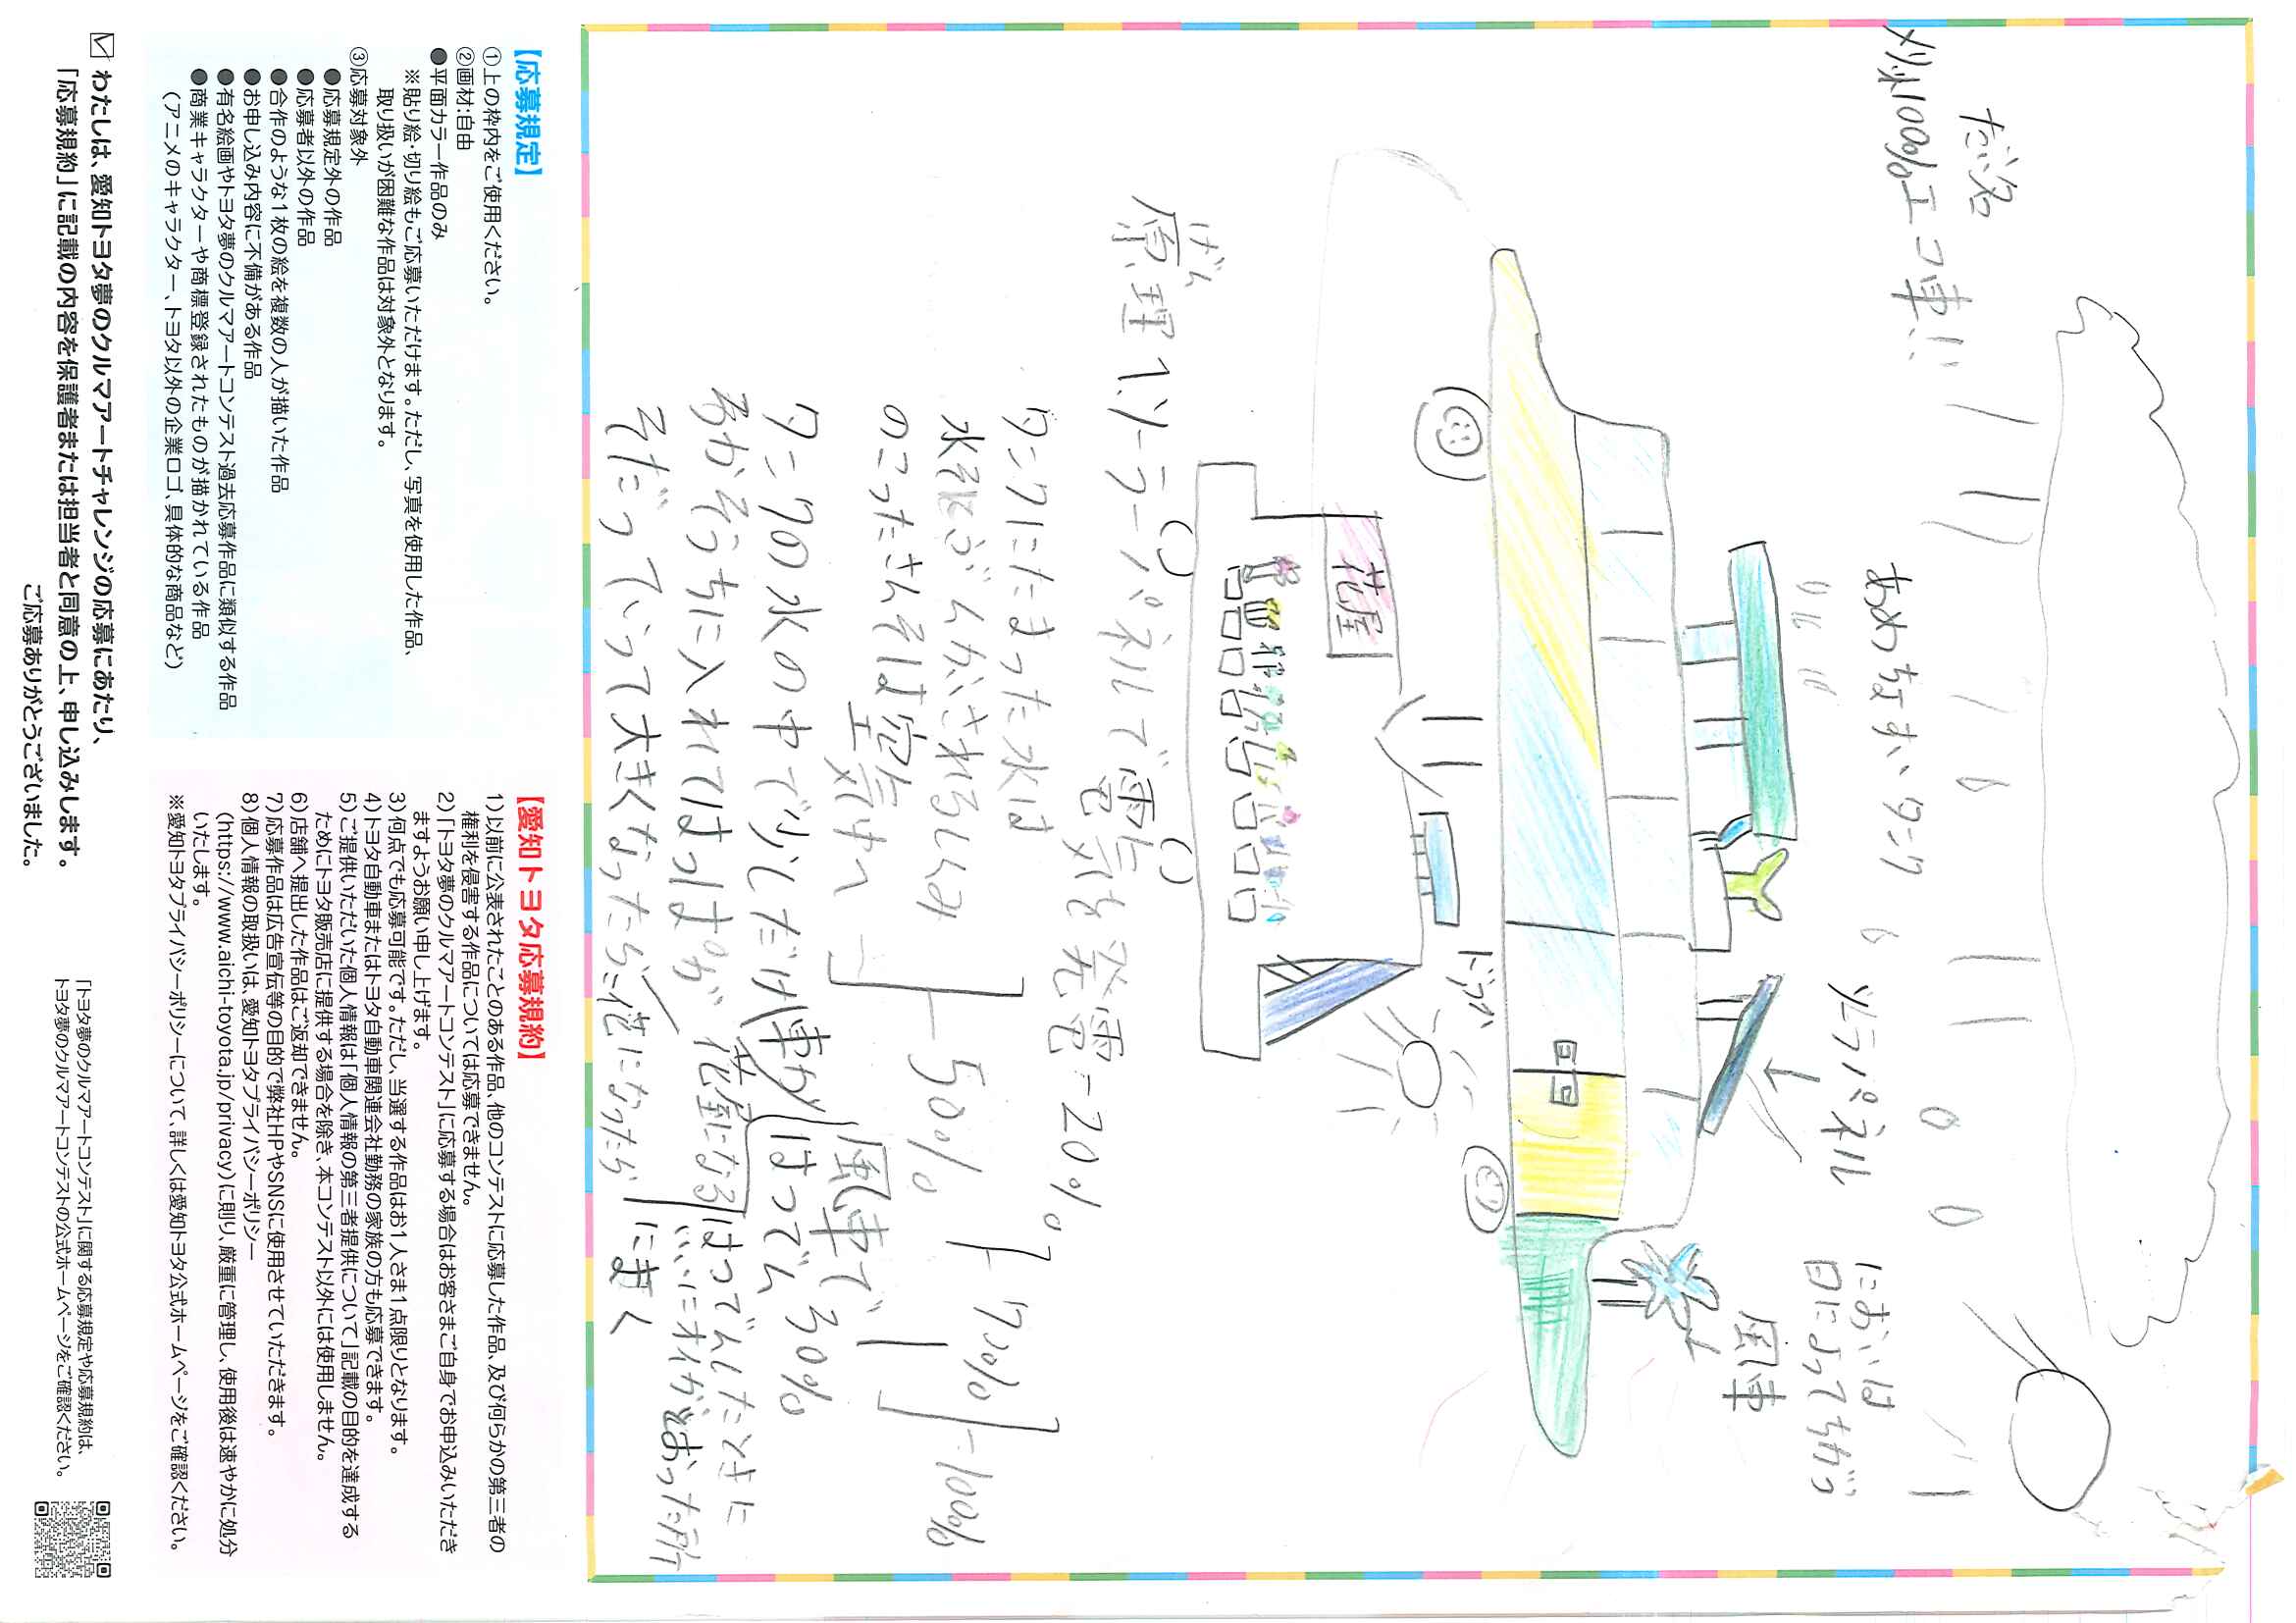 だい名
メリ火100%エコ車!!
あめちょすいタンク
ソーラーパネル
においは
日によってちがう
風車
ドうろ
花屋
げんり
原理 1.ソーラーパネルで電気を発電-20%
タンクにたまった水は
水そにぶんかいされるしくみ
のこったさんそは空気中へ
50%
70%
100%
タンクの水の中で少しだけ車が
風車で
はつでん
30%
あおぞうちに入れてはっぱが
花金になる
はつでんしたときに
そだっていって大きくなったら花になったら
にまく
【応募規定】
①上の枠内をご使用ください。
②画材:自由
●平面カラー作品のみ
※貼り絵・切り絵もご応募いただけます。ただし、写真を使用した作品、
取り扱いが困難な作品は対象外となります。
③応募対象外
●応募規定外の作品
●応募者以外の作品
●合作のような1枚の絵を複数の人が描いた作品
●お申し込み内容に不備がある作品
●有名絵画やトヨタ夢のクルマアートコンテスト過去応募作品に類似する作品
●商業キャラクターや商標登録されたものが描かれている作品
(アニメのキャラクター、トヨタ以外の企業ロゴ、具体的な商品など)
【愛知トヨタ応募規約】
1)以前に公表されたことのある作品、他のコンテストに応募した作品、及び何らかの第三者の
権利を侵害する作品については応募できません。
2)「トヨタ夢のクルマアートコンテスト」に応募する場合はお客さまご自身でお申込みいただき
ますようお願い申し上げます。
3)何点でも応募可能です。ただし、当選する作品はお1人さま1点限りとなります。
4)トヨタ自動車またはトヨタ自動車関連会社勤務の家族の方も応募できます。
5)ご提供いただいた個人情報は「個人情報の第三者提供について」記載の目的を達成する
ためにトヨタ販売店に提供する場合を除き、本コンテスト以外には使用しません。
6)店舗へ提出した作品はご返却できません。
7)応募作品は広告宣伝等の目的で弊社HPやSNSに使用させていただきます。
8)個人情報の取扱いは、愛知トヨタプライバシーポリシー
(https://www.aichi-toyota.jp/privacy)に則り、厳重に管理し、使用後は速やかに処分
いたします。
※愛知トヨタプライバシーポリシーについて、詳しくは愛知トヨタ公式ホームページをご確認ください。
わたしは、愛知トヨタ夢のクルマアートチャレンジの応募にあたり、
「応募規約」に記載の内容を保護者または担当者と同意の上、申し込みします。
ご応募ありがとうございました。
「トヨタ夢のクルマアートコンテスト」に関する応募規定や応募規約は、
トヨタ夢のクルマアートコンテストの公式ホームページをご確認ください。